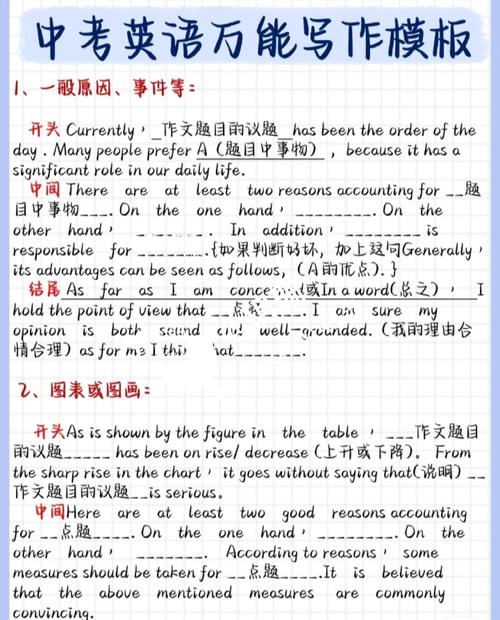 中考英语万能写作模板
1、一般原因、事件等:
开头 Currently, _作文题目的议题_ has been the order of the
day . Many people prefer A (题目中事物) , because it has a
significant role in our daily life.
中间 There are at least two reasons accounting for __题
目中事物____. On the one hand, ________. On the
other hand, ________. In addition, ________ is
responsible for ________.{如果判断好坏,加上这句Generally,
its advantages can be seen as follows, (A的优点). }
结尾 As far as I am 或In a word(总之), I
hold the point of view that __点题____. I am sure my
opinion is both sound well-grounded. (我的理由合
情合理) as for me I ________.
2、图表或图画:
开头As is shown by the figure in the table , ___作文题目
的议题_____ has been on rise/ decrease (上升或下降)。 From
the sharp rise in the chart, it goes without saying that(说明) __
作文题目的议题__is serious。
中间Here are at least two good reasons accounting
for __点题____. On the one hand, ________. On the
other hand, ________. According to reasons, some
measures should be taken for __点题____.It is believed
that the above mentioned measures are commonly
convincing.